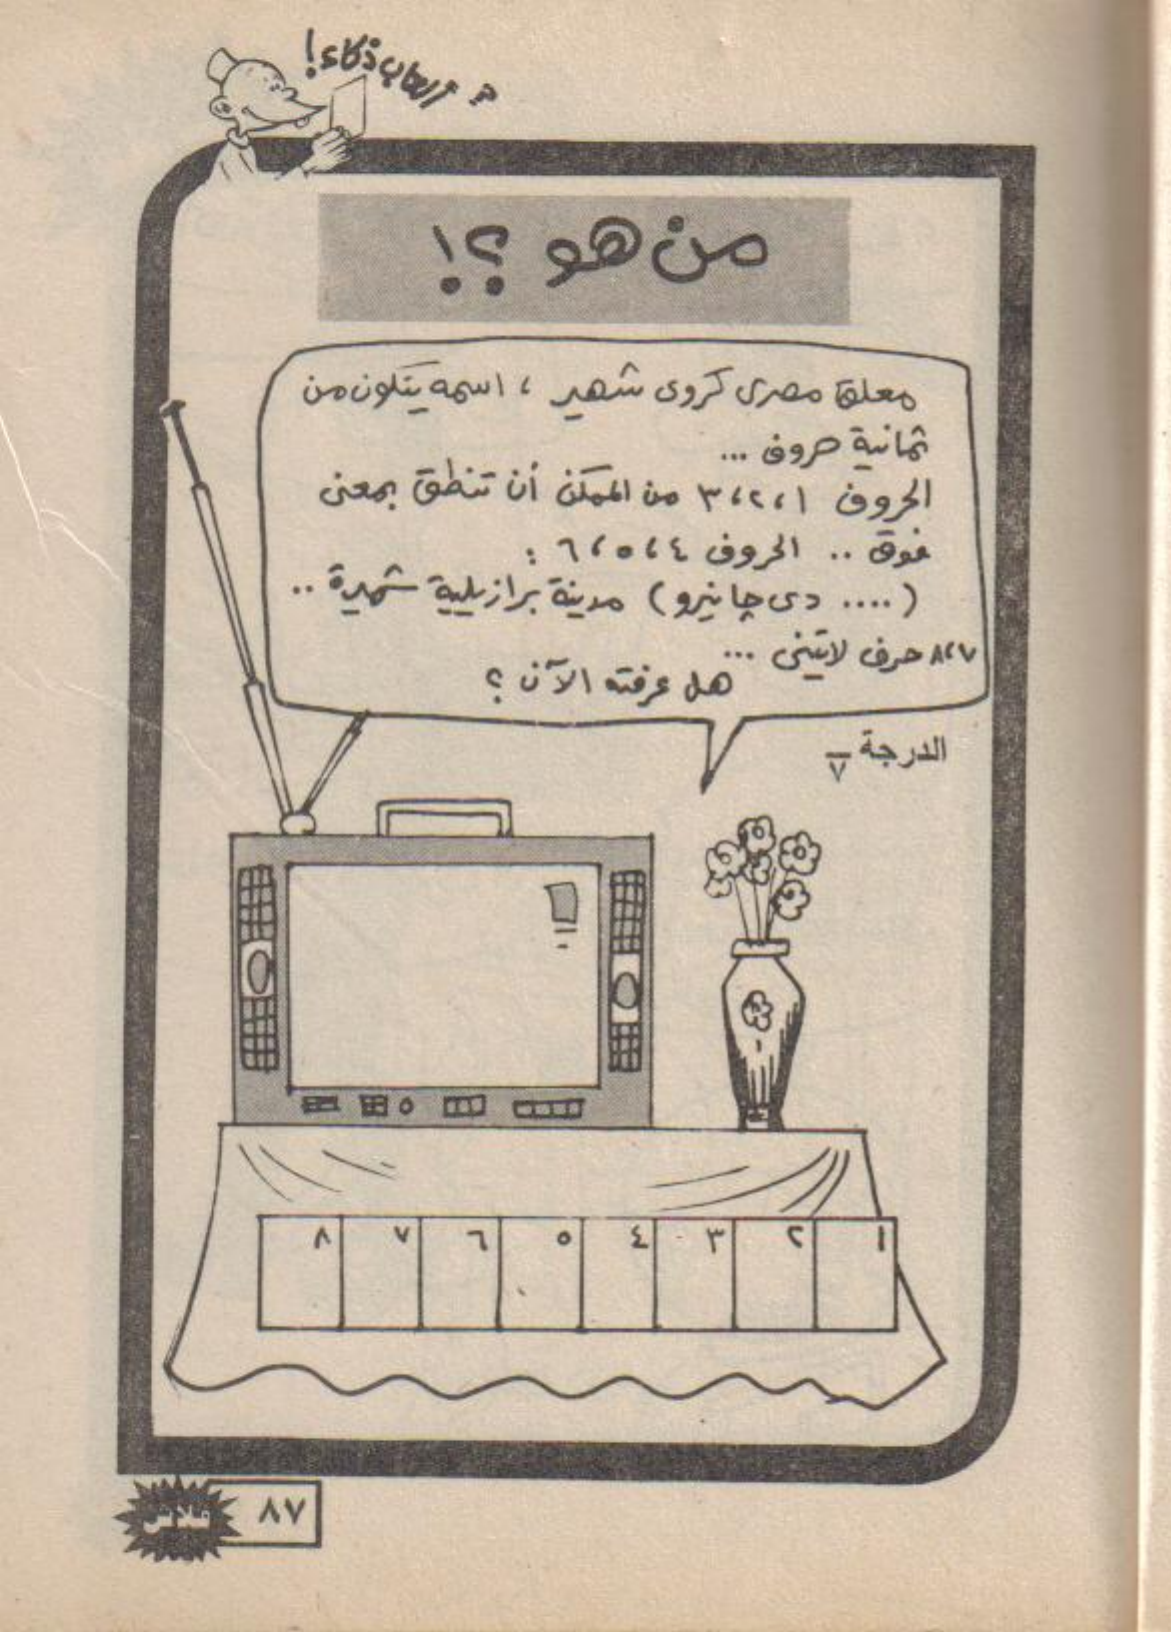 ألعاب ذكاء!
من هو ؟!
معلق مصرى كروى شهير ، اسمه يتكون من
ثمانية حروف ...
الحروف ١،٢،٣ من الممكن أن تنطق بمعنى
فوق .. الحروف ٤،٥،٦ :
(.... دى چانيرو) مدينة برازيلية شهيرة ..
٧،٨ حرف لاتينى ...
هل عرفته الآن ؟
الدرجة ٧
١ ٢ ٣ ٤ ٥ ٦ ٧ ٨
٨٧ فلاش